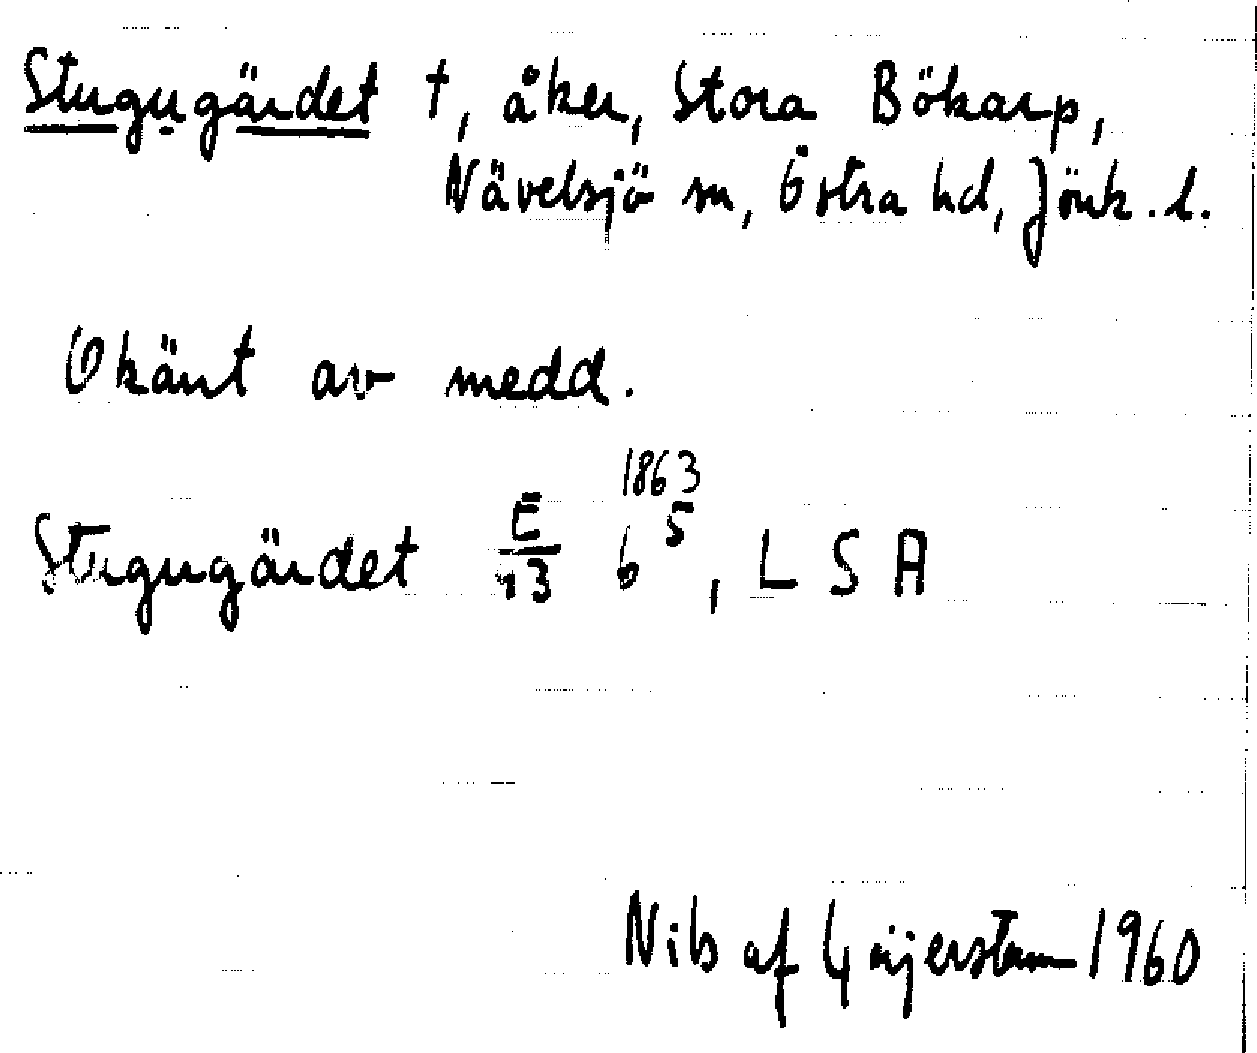 Stugugärdet †, åker, Stora Bökarp,
Nävelsjö sn, Östra hd, Jönk. l.
Okänt av medd.
1863
Stugugärdet E/13 6 5, L S A
Nils af Geijerstam 1960